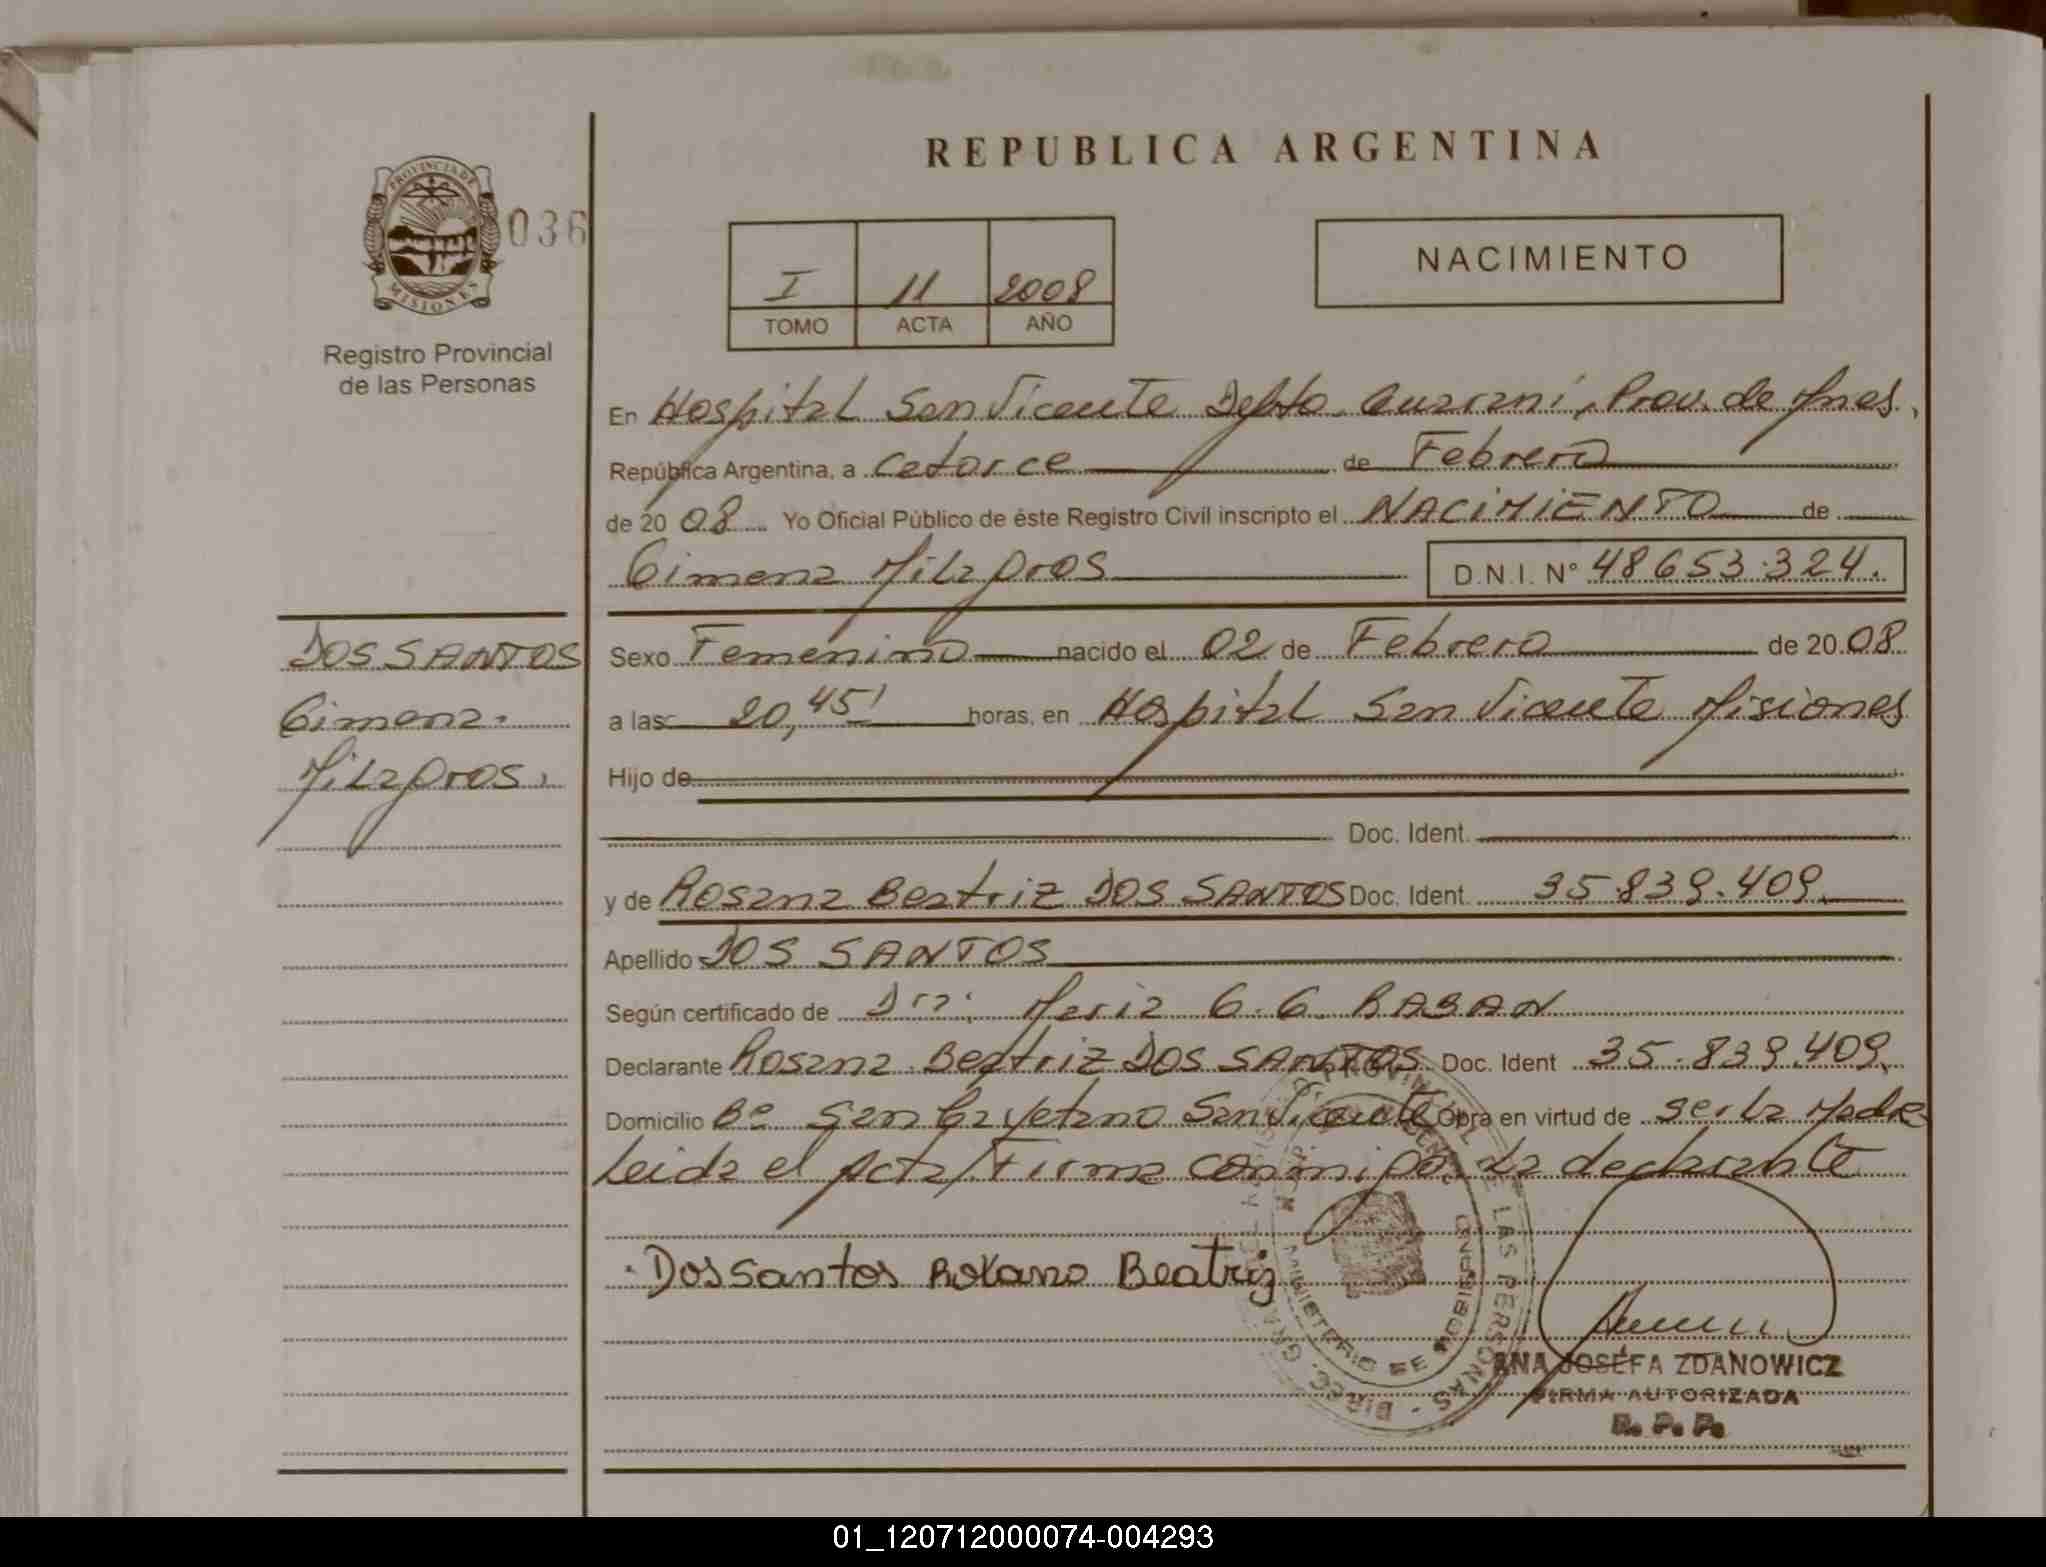 REPUBLICA ARGENTINA
PROVINCIA DE
MISIONES
036
Registro Provincial
de las Personas
I 11 2008
TOMO ACTA AÑO
NACIMIENTO
En Hospital San Vicente Depto. Guaraní, Prov. de Mnes.
República Argentina, a catorce de Febrero
de 20 08 Yo Oficial Público de éste Registro Civil inscripto el NACIMIENTO de
Gimena Milagros D.N.I. Nº 48653.324.
DOS SANTOS
Gimena
Milagros.
Sexo Femenino nacido el 02 de Febrero de 20 08
a las 20,45' horas, en Hospital San Vicente Misiones
Hijo de
Doc. Ident.
y de Rosana Beatriz DOS SANTOS Doc. Ident. 35.839.409.
Apellido DOS SANTOS
Según certificado de Dra: Maria G. G. RABAN
Declarante Rosana Beatriz DOS SANTOS Doc. Ident 35.839.409.
Domicilio Bº San Cayetano San Vicente Obra en virtud de ser la Madre
Leida el Acta, Firma conmigo la declarante
Dos santos Roxana Beatriz
MINISTERIO DE
LAS PERSONAS
ANA JOSEFA ZDANOWICZ
FIRMA AUTORIZADA
R. P. P.
01_120712000074-004293